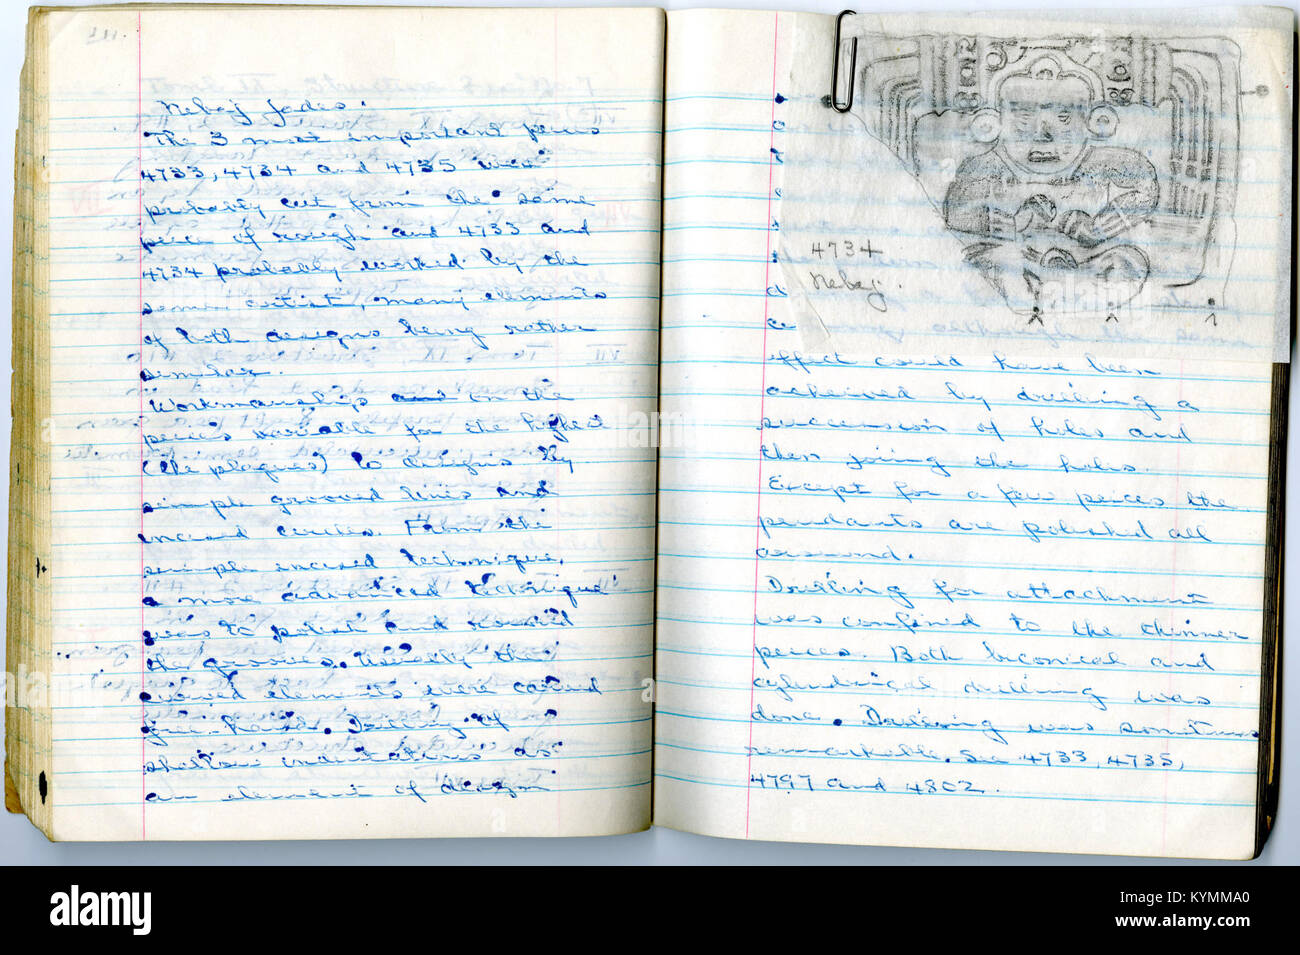 Nebaj Jades.
The 3 most important peices
4733, 4734 and 4735 were
probably cut from the same
peice of rough and 4733 and
4734 probably worked by the
same artist, many elements
of both designs being rather
similar.
Workmanship and on the
peices variable for the highest
(the plaques) to designs by
simple grooved lines and
incised circles. From the
simple incised technique,
a more advanced technique
was to polish and round
the grooves. Usually the
curved elements were carved
free-hand. Drilling of
shallow indentations as
an element of design
4734
Nebaj.
although the same
effect could have been
acheived by drilling a
succession of holes and
then joining the holes.
Except for a few peices the
pendants are polished all
around.
Drilling for attachment
was confined to the thinner
peices. Both biconical and
cylindrical drilling was
done. Drilling was sometimes
remarkable. See 4733, 4735,
4797 and 4802.
alamy
Image ID: KYMMA0
www.alamy.com